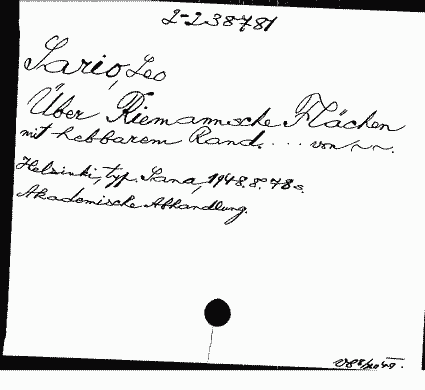 2-238781
Sario, Leo
Über Riemannsche Flächen
mit hebbarem Rand. ... von ~~.
Helsinki, typ. Sana, 1948. 8°. 78 s.
Akademische Abhandlung.